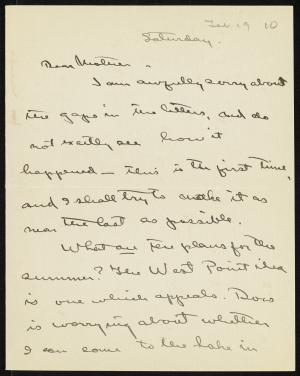 Feb 19 10
Saturday.
Dear Mother -
I am awfully sorry about
the gaps in the letters, and do
not exactly see how it
happened — this is the first time,
and I shall try to make it as
near the last as possible.
What are the plans for the
summer? The West Point idea
is one which appeals. Does
is worrying about whether
I can come to the Lake in